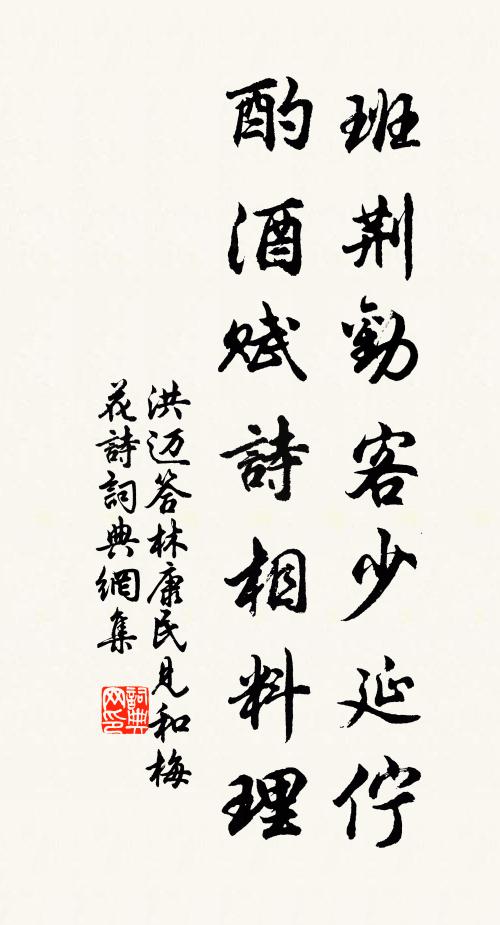 班荆勸客少延佇
酌酒赋詩相料理
洪迈答林康民見和梅
花詩詞典網集
詞典
网印